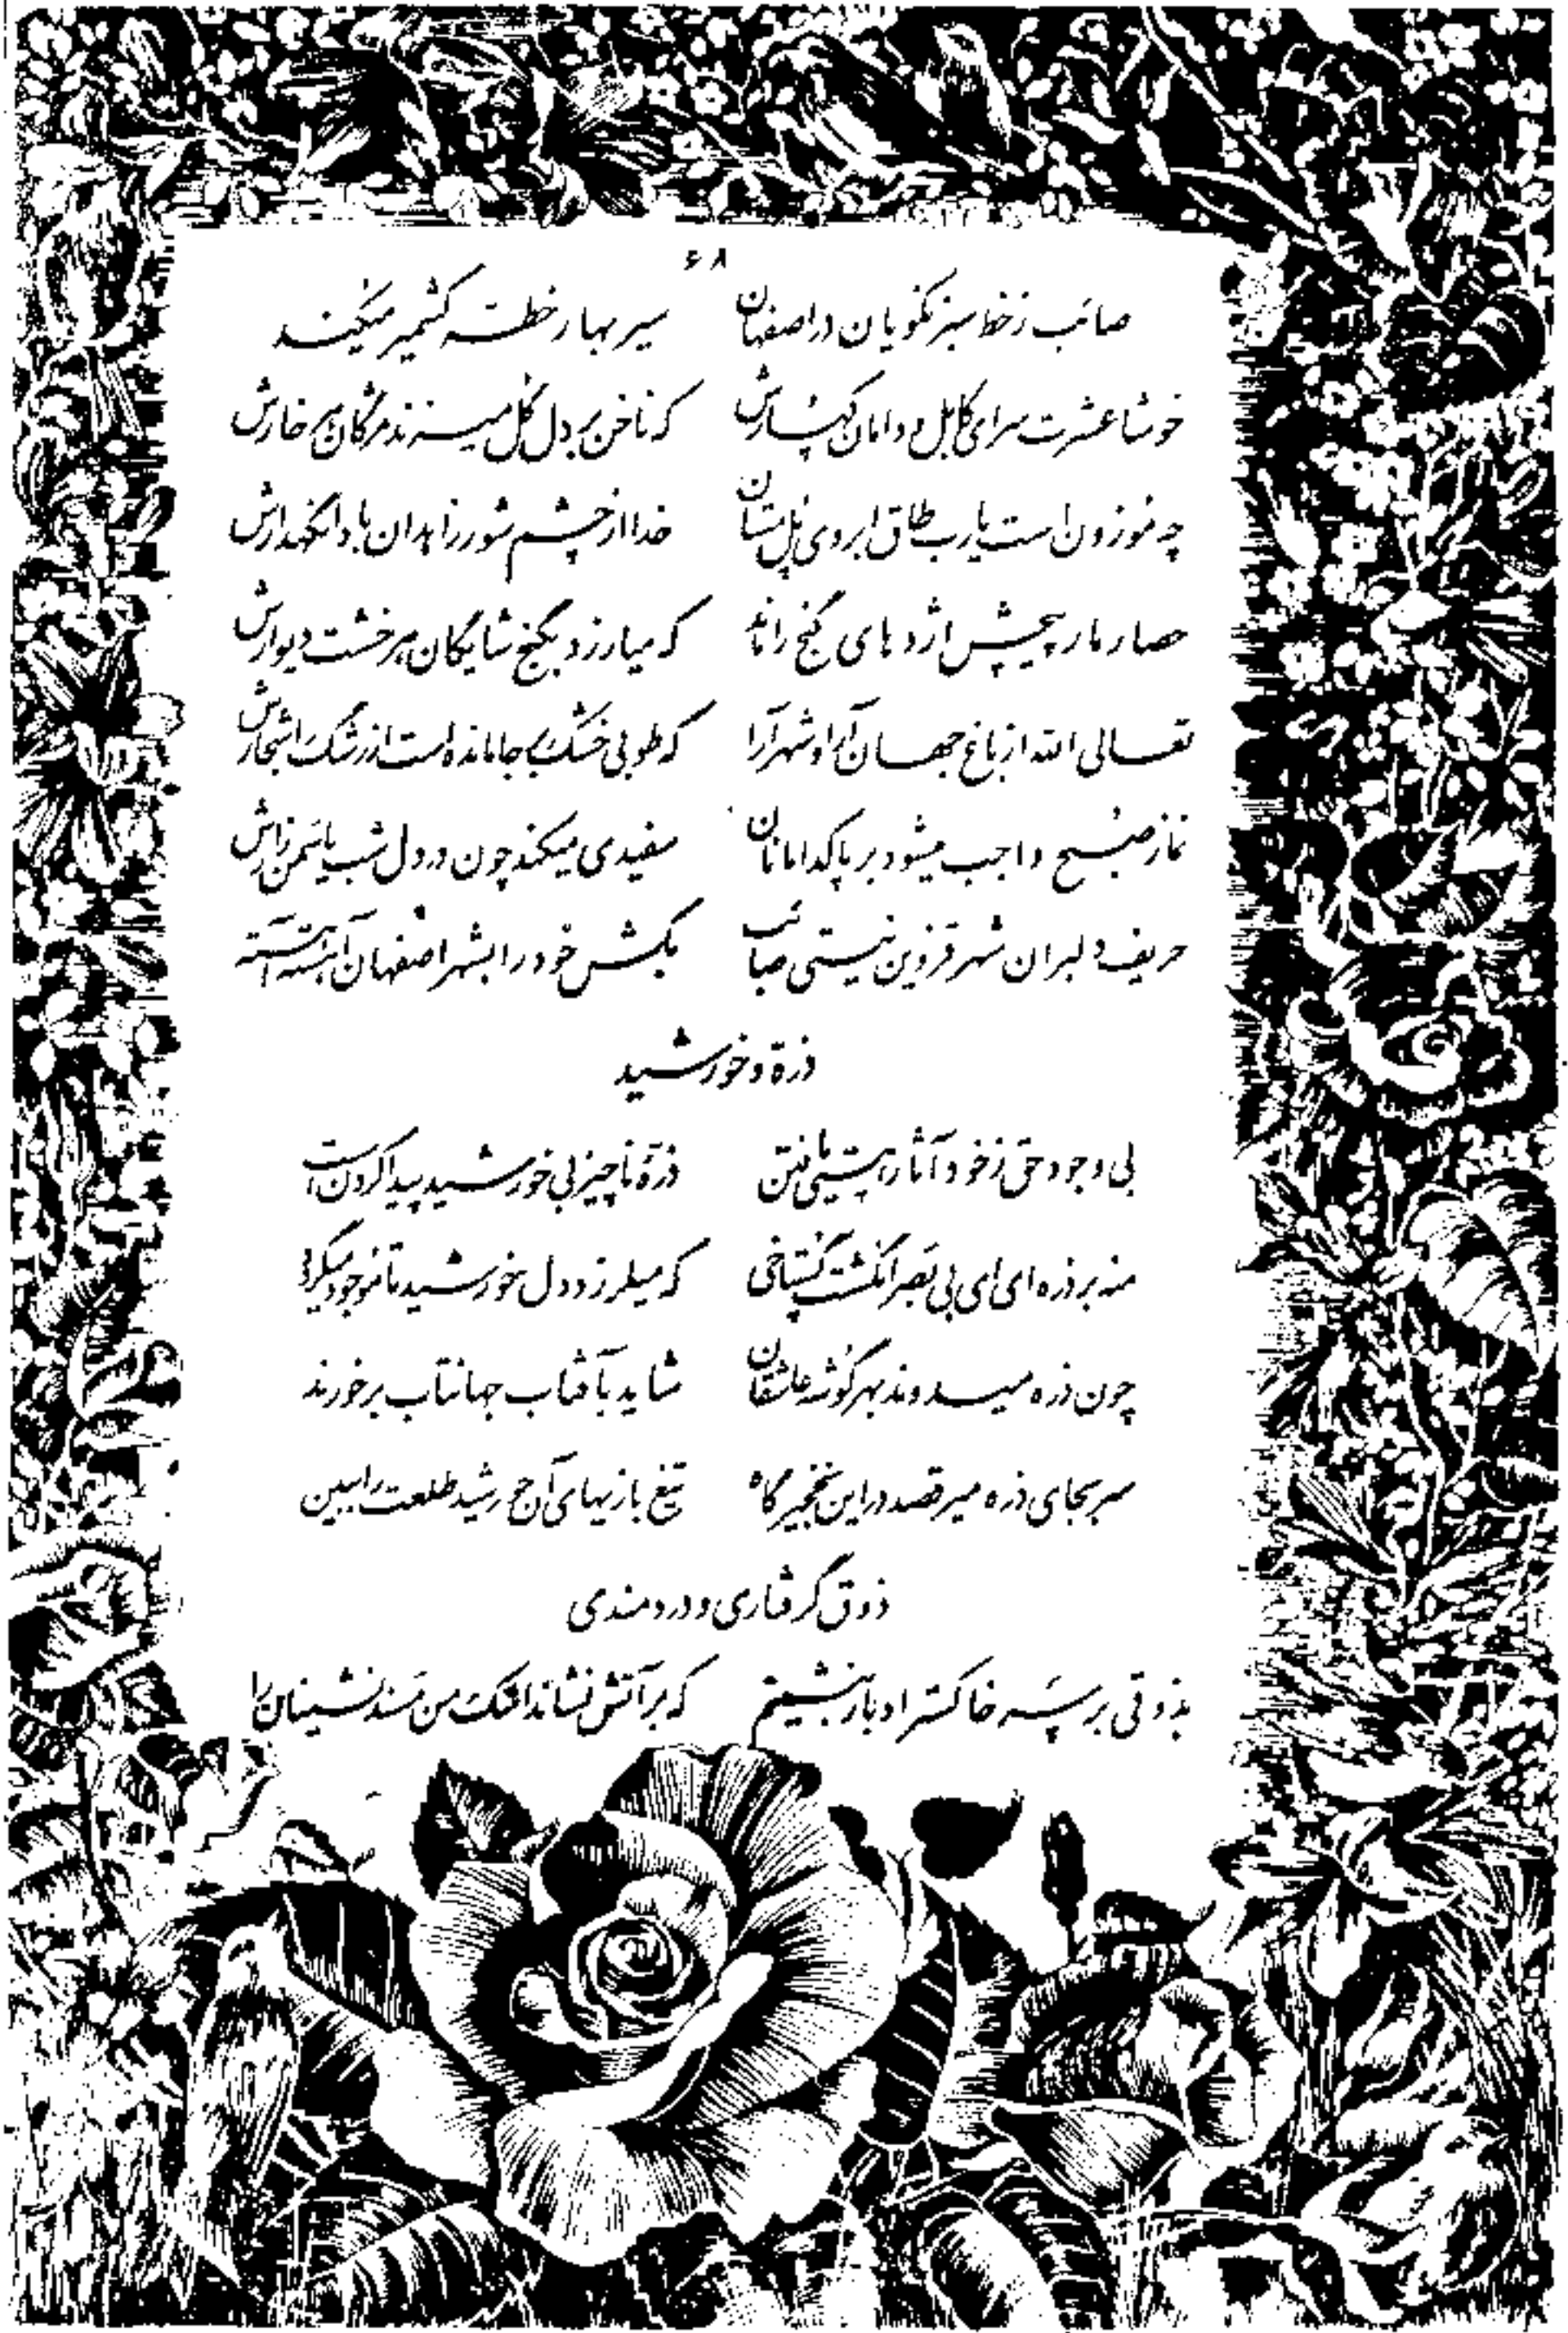 ۶۸
صائب ز خط سبز نکویان در اصفهان سیر بهار خطه کشمیر میکند
خوشا عشرت سرای کابل و دامان کهسارش که ناخن بر دل گل میزند مژگان هر خارش
چه موزون است یارب طاق ابروی پل مستان خدا از چشم شور زاهدان بادا نگهدارش
حصار مار پیچش اژدهای گنج را ماند که میارزد بگنج شایگان هر خشت دیوارش
تعالی الله از باغ جهان آرا و شهرآرا که طوبی خشک بر جا مانده است از رشک اشجارش
نماز صبح واجب میشود بر پاکدامانان سفیدی میکند چون در دل شب یاسمن زارش
حریف دلبران شهر قزوین نیستی صائب بکش خود را بشهر اصفهان آهسته آهسته
ذرة و خورشید
بی وجود حق ز خود آثار هستی یافتن ذرّهٔ ناچیز بی خورشید پیدا کردن است
منه بر ذره ای ای بی بصر انگشت گستاخی که میلرزد دل خورشید تا موجود میگردد
چون ذره میدوند بهر گوشه عاشقان شاید بآفتاب جهانتاب برخورند
سر بجای ذره میرقصد در این نخجیرگاه تیغ بازیهای آن خورشید طلعت را ببین
ذوق گرفتاری و دردمندی
بذوقی بر سر خاکستر ادبار بنشینم که بر آتش نشاند اشک من مسند نشینان را